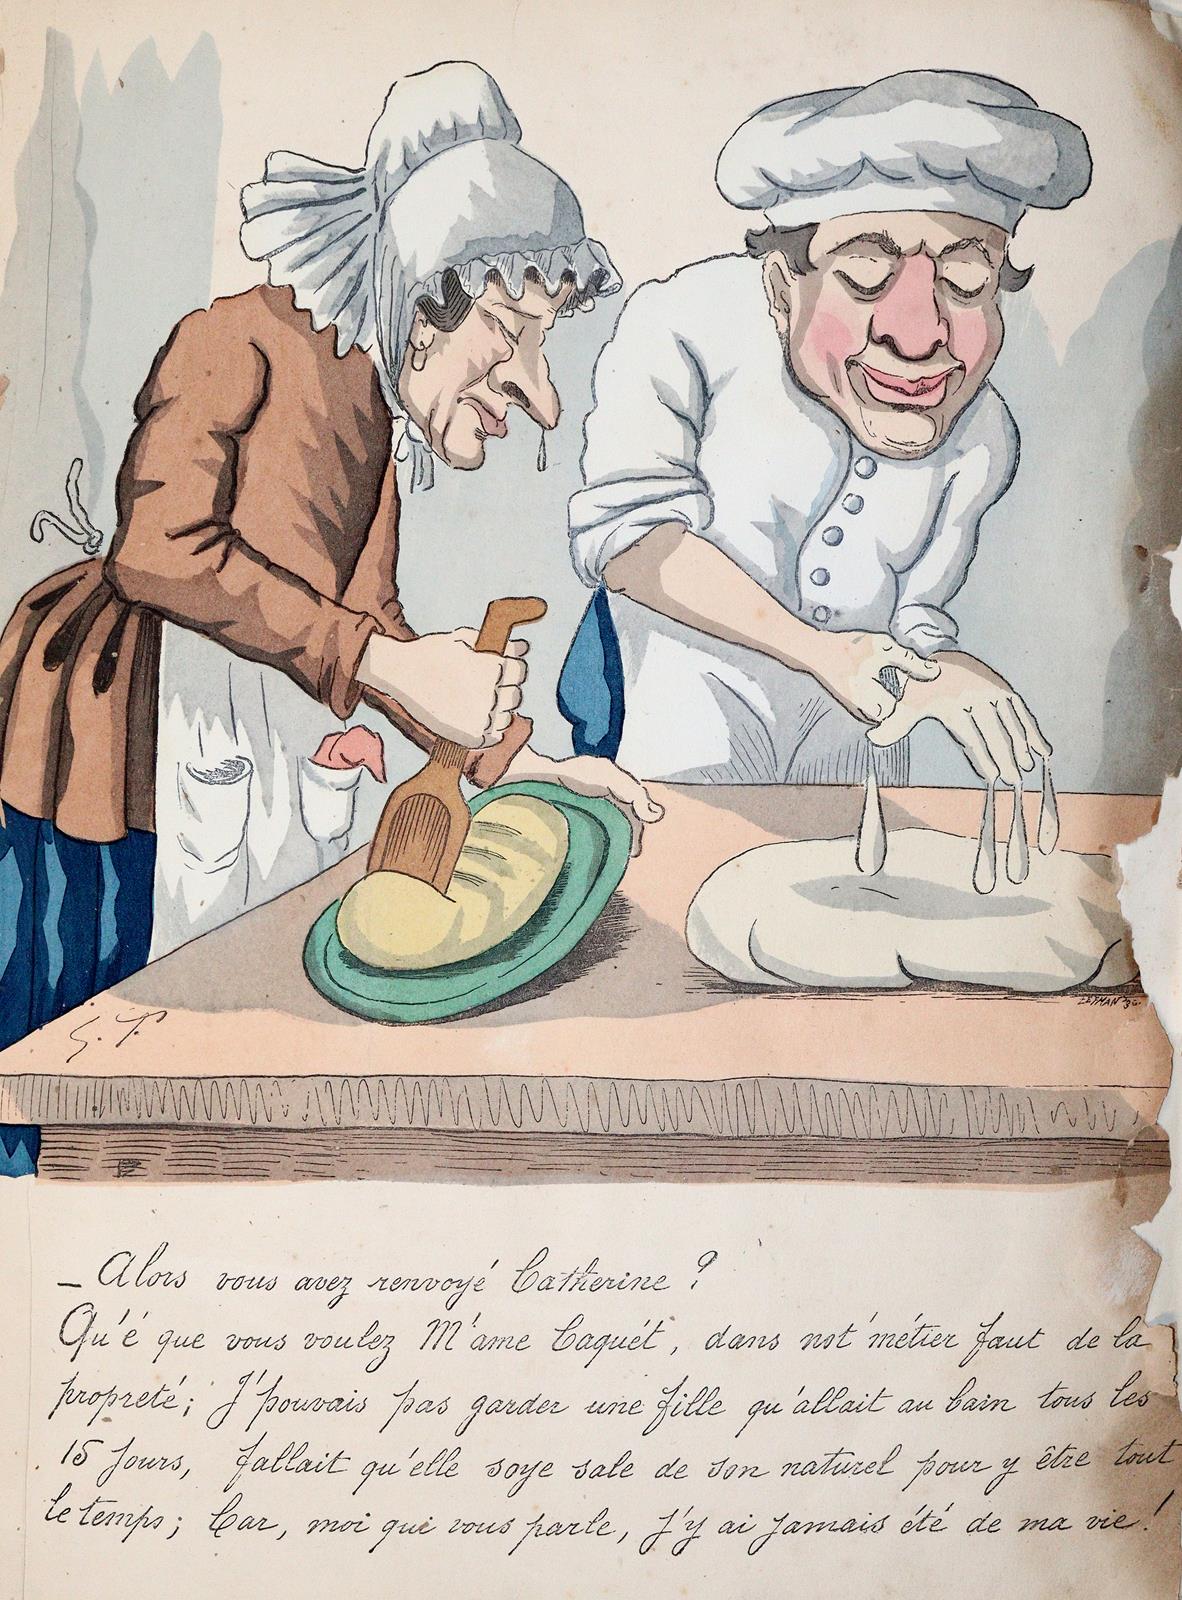 LEYMAN 36.
G. P
_ Alors vous avez renvoyé Catherine ?
Qu'é que vous voulez M'ame Caquét, dans not'métier faut de la
propreté; J'pouvais pas garder une fille qu'allait au bain tous les
15 jours, fallait qu'elle soye sale de son naturel pour y être tout
le temps; Car, moi qui vous parle, j'y ai jamais été de ma vie!